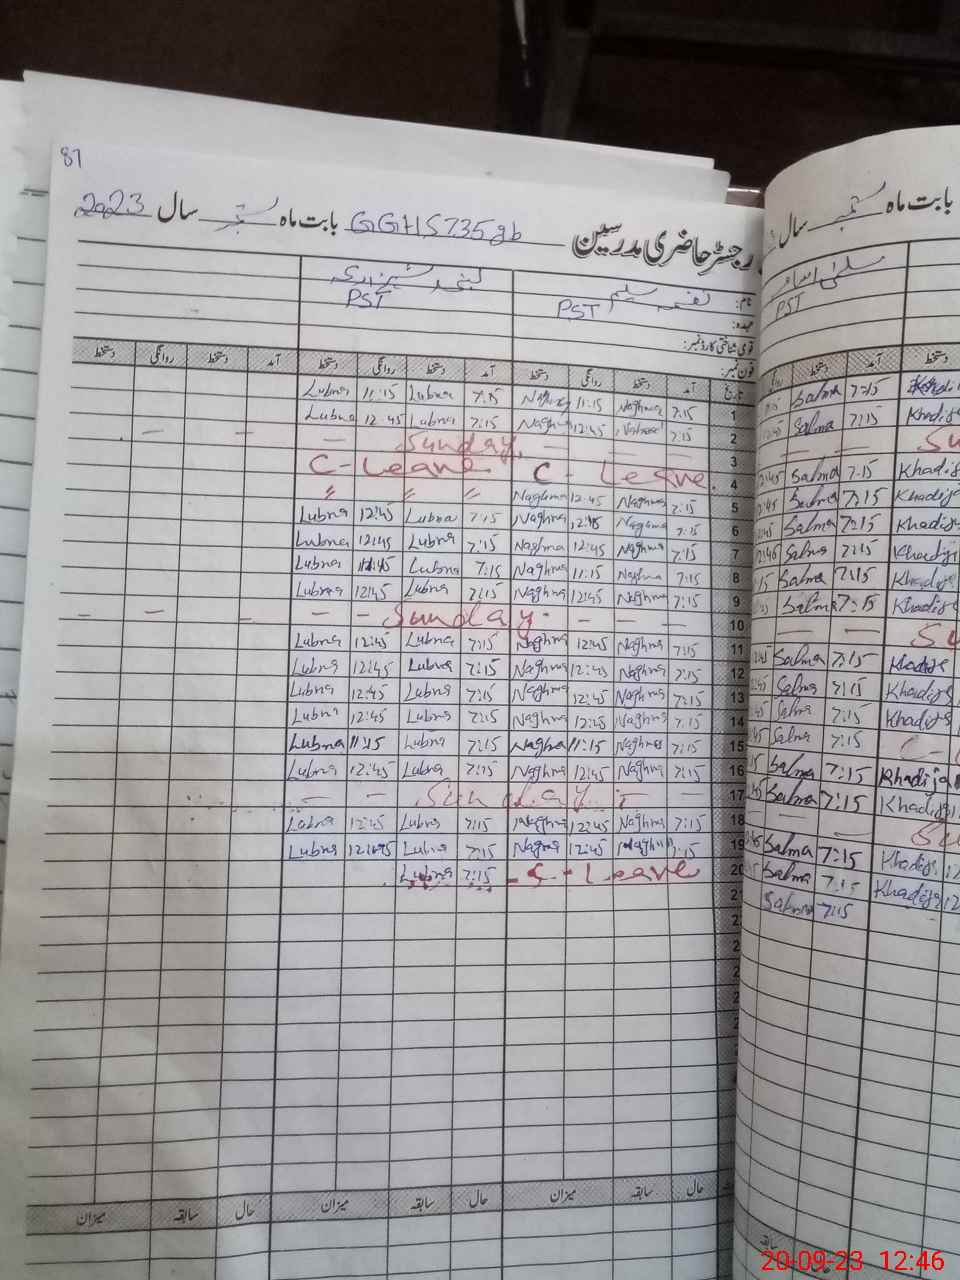 87
رجسٹر حاضری مدرسین GGHS 735 gb بابت ماہ ستمبر سال 2023
بابت ماہ ستمبر سال
نام: نغمہ سلیم لبنیٰ شیرازی
عہدہ: PST PST
PST
قومی شناختی کارڈ نمبر:
فون نمبر:
تاریخ آمد دستخط روانگی دستخط آمد دستخط روانگی دستخط آمد دستخط روانگی دستخط
آمد دستخط دستخط
1 7:15 Naghma 11:15 7:15 Lubna 11:15 Lubna
2 7:15 12:45 Naghma 7:15 Lubna 12:45 Lubna
3 — — Sunday — — —
4 C - Leave C - Leave
5 7:15 Naghma 12:45 Naghma 〃 〃 〃
6 7:15 Naghma 12:45 Naghma 7:15 Lubna 12:45 Lubna
7 7:15 Naghma 12:45 Naghma 7:15 Lubna 12:45 Lubna
8 7:15 Naghma 11:15 Naghma 7:15 Lubna Lubna
9 7:15 Naghma 12:45 Naghma 7:15 Lubna 12:45 Lubna
10 — — — Sunday — — — —
11 7:15 Naghma 12:45 Naghma 7:15 Lubna 12:45 Lubna
12 7:15 Naghma 12:45 Naghma 7:15 Lubna 12:45 Lubna
13 7:15 Naghma 12:45 Naghma 7:15 Lubna 12:45 Lubna
14 7:15 Naghma 12:45 Naghma 7:15 Lubna 12:45 Lubna
15 7:15 Naghma 11:15 Naghma 7:15 Lubna 11:15 Lubna
16 7:15 Naghma 12:45 Naghma 7:15 Lubna 12:45 Lubna
17 — — Sunday — —
18 7:15 Naghma 12:45 Naghma 7:15 Lubna 12:45 Lubna
19 7:15 Naghma 12:45 Nagma 7:15 Lubna 12:45 Lubna
20 S - Leave 7:15 Lubna
21
حال سابقہ میزان حال سابقہ میزان حال سابقہ میزان
7:15 Salma
7:15 Salma Khadija
— —
7:15 Salma Khadija
7:15 Salma Khadija
7:15 Salma Khadija
7:15 Salma Khadija
7:15 Salma Khadija
7:15 Salma Khadija
— —
7:15 Salma Khadija
7:15 Salma Khadija
7:15 Salma Khadija
7:15 Salma
7:15 Salma Khadija
7:15 Salma Khadija
— —
7:15 Salma Khadija
7:15 Salma Khadija
7:15 Salma
سابقہ
20-09-23 12:46